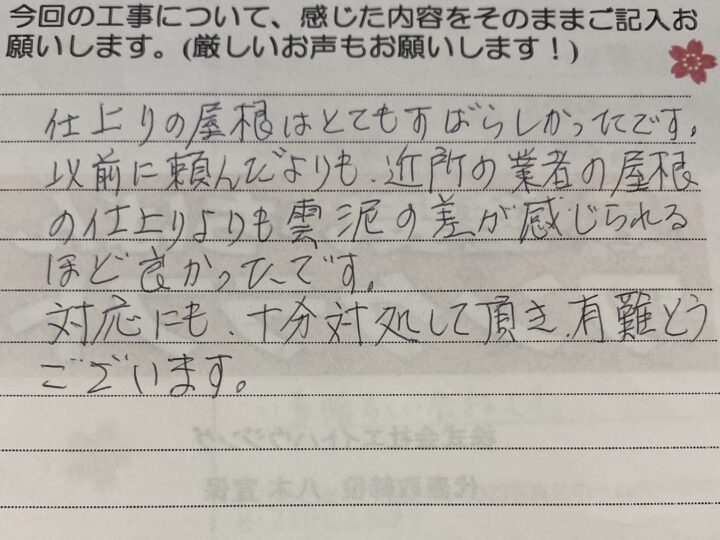 今回の工事について、感じた内容をそのままご記入お
願いします。(厳しいお声もお願いします！)
仕上りの屋根はとてもすばらしかったです。
以前に頼んだよりも、近所の業者の屋根
の仕上りよりも雲泥の差が感じられる
ほど良かったです。
対応にも、十分対処して頂き、有難とう
ございます。
株式会社エイトハウジング
代表取締役 八木宣保